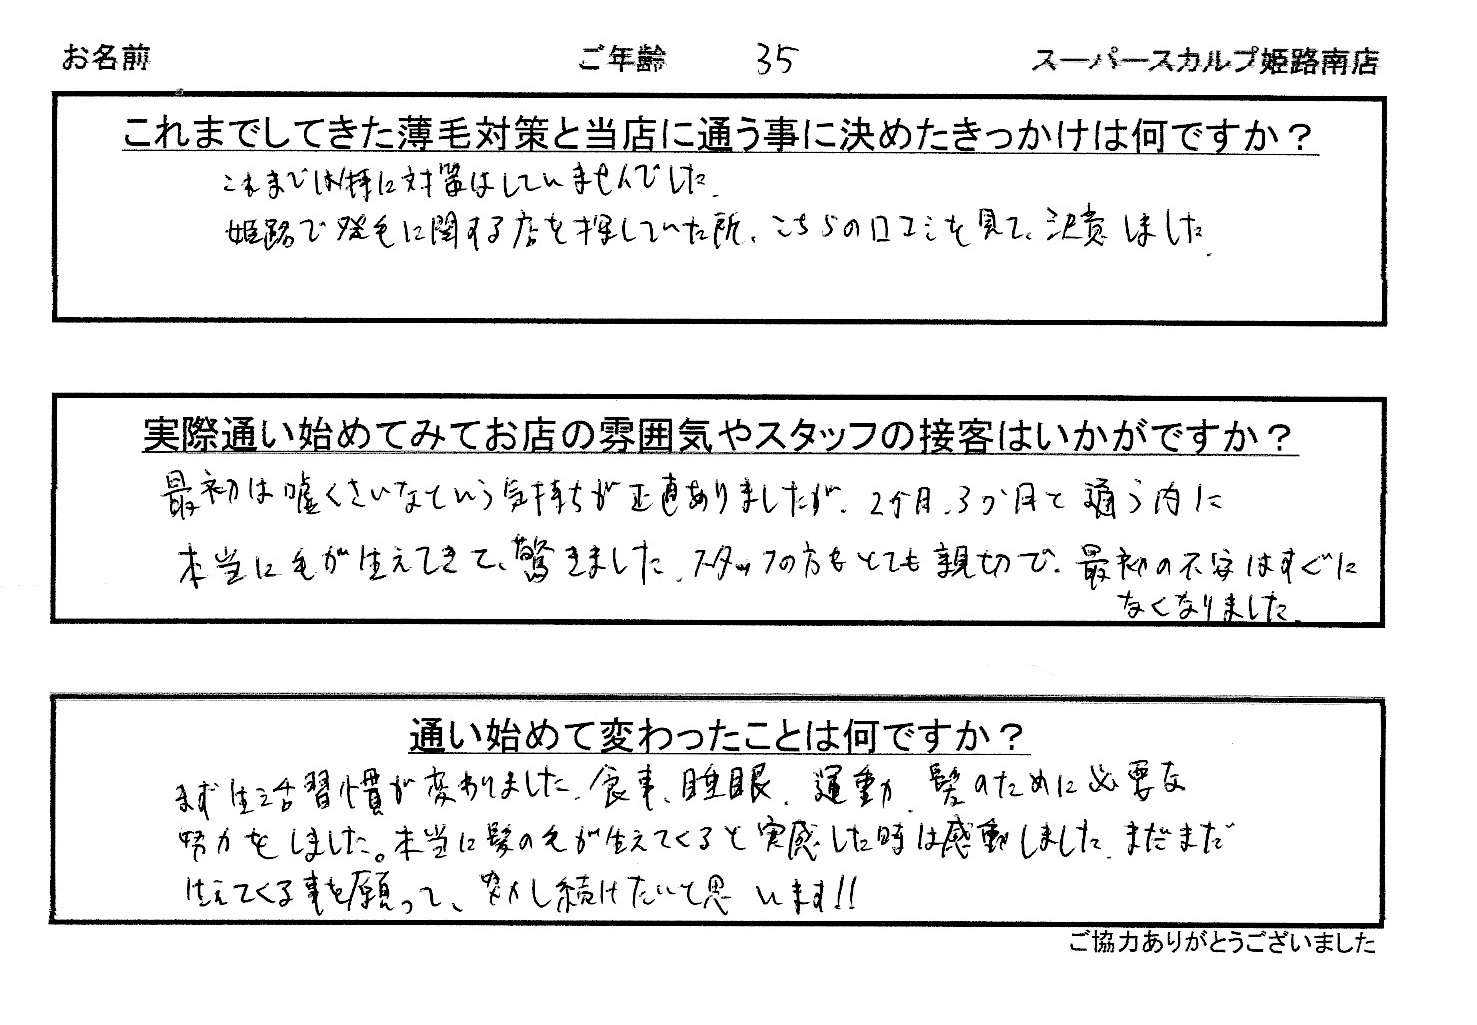 お名前 ご年齢 35 スーパースカルプ姫路南店
これまでしてきた薄毛対策と当店に通う事に決めたきっかけは何ですか？
これまでは特に対策はしていませんでした。
姫路で発毛に関する店を探していた所、こちらの口コミを見て、決意しました。
実際通い始めてみてお店の雰囲気やスタッフの接客はいかがですか？
最初は嘘くさいなという気持ちが正直ありましたが、2ケ月、3か月と通う内に
本当に毛が生えてきて、驚きました。スタッフの方もとても親切で、最初の不安はすぐに
なくなりました。
通い始めて変わったことは何ですか？
まず生活習慣が変わりました。食事、睡眠、運動、髪のために必要な
努力をしました。本当に髪の毛が生えてくると実感した時は感動しました。まだまだ
生えてくる事を願って、努力し続けたいと思います!!
ご協力ありがとうございました